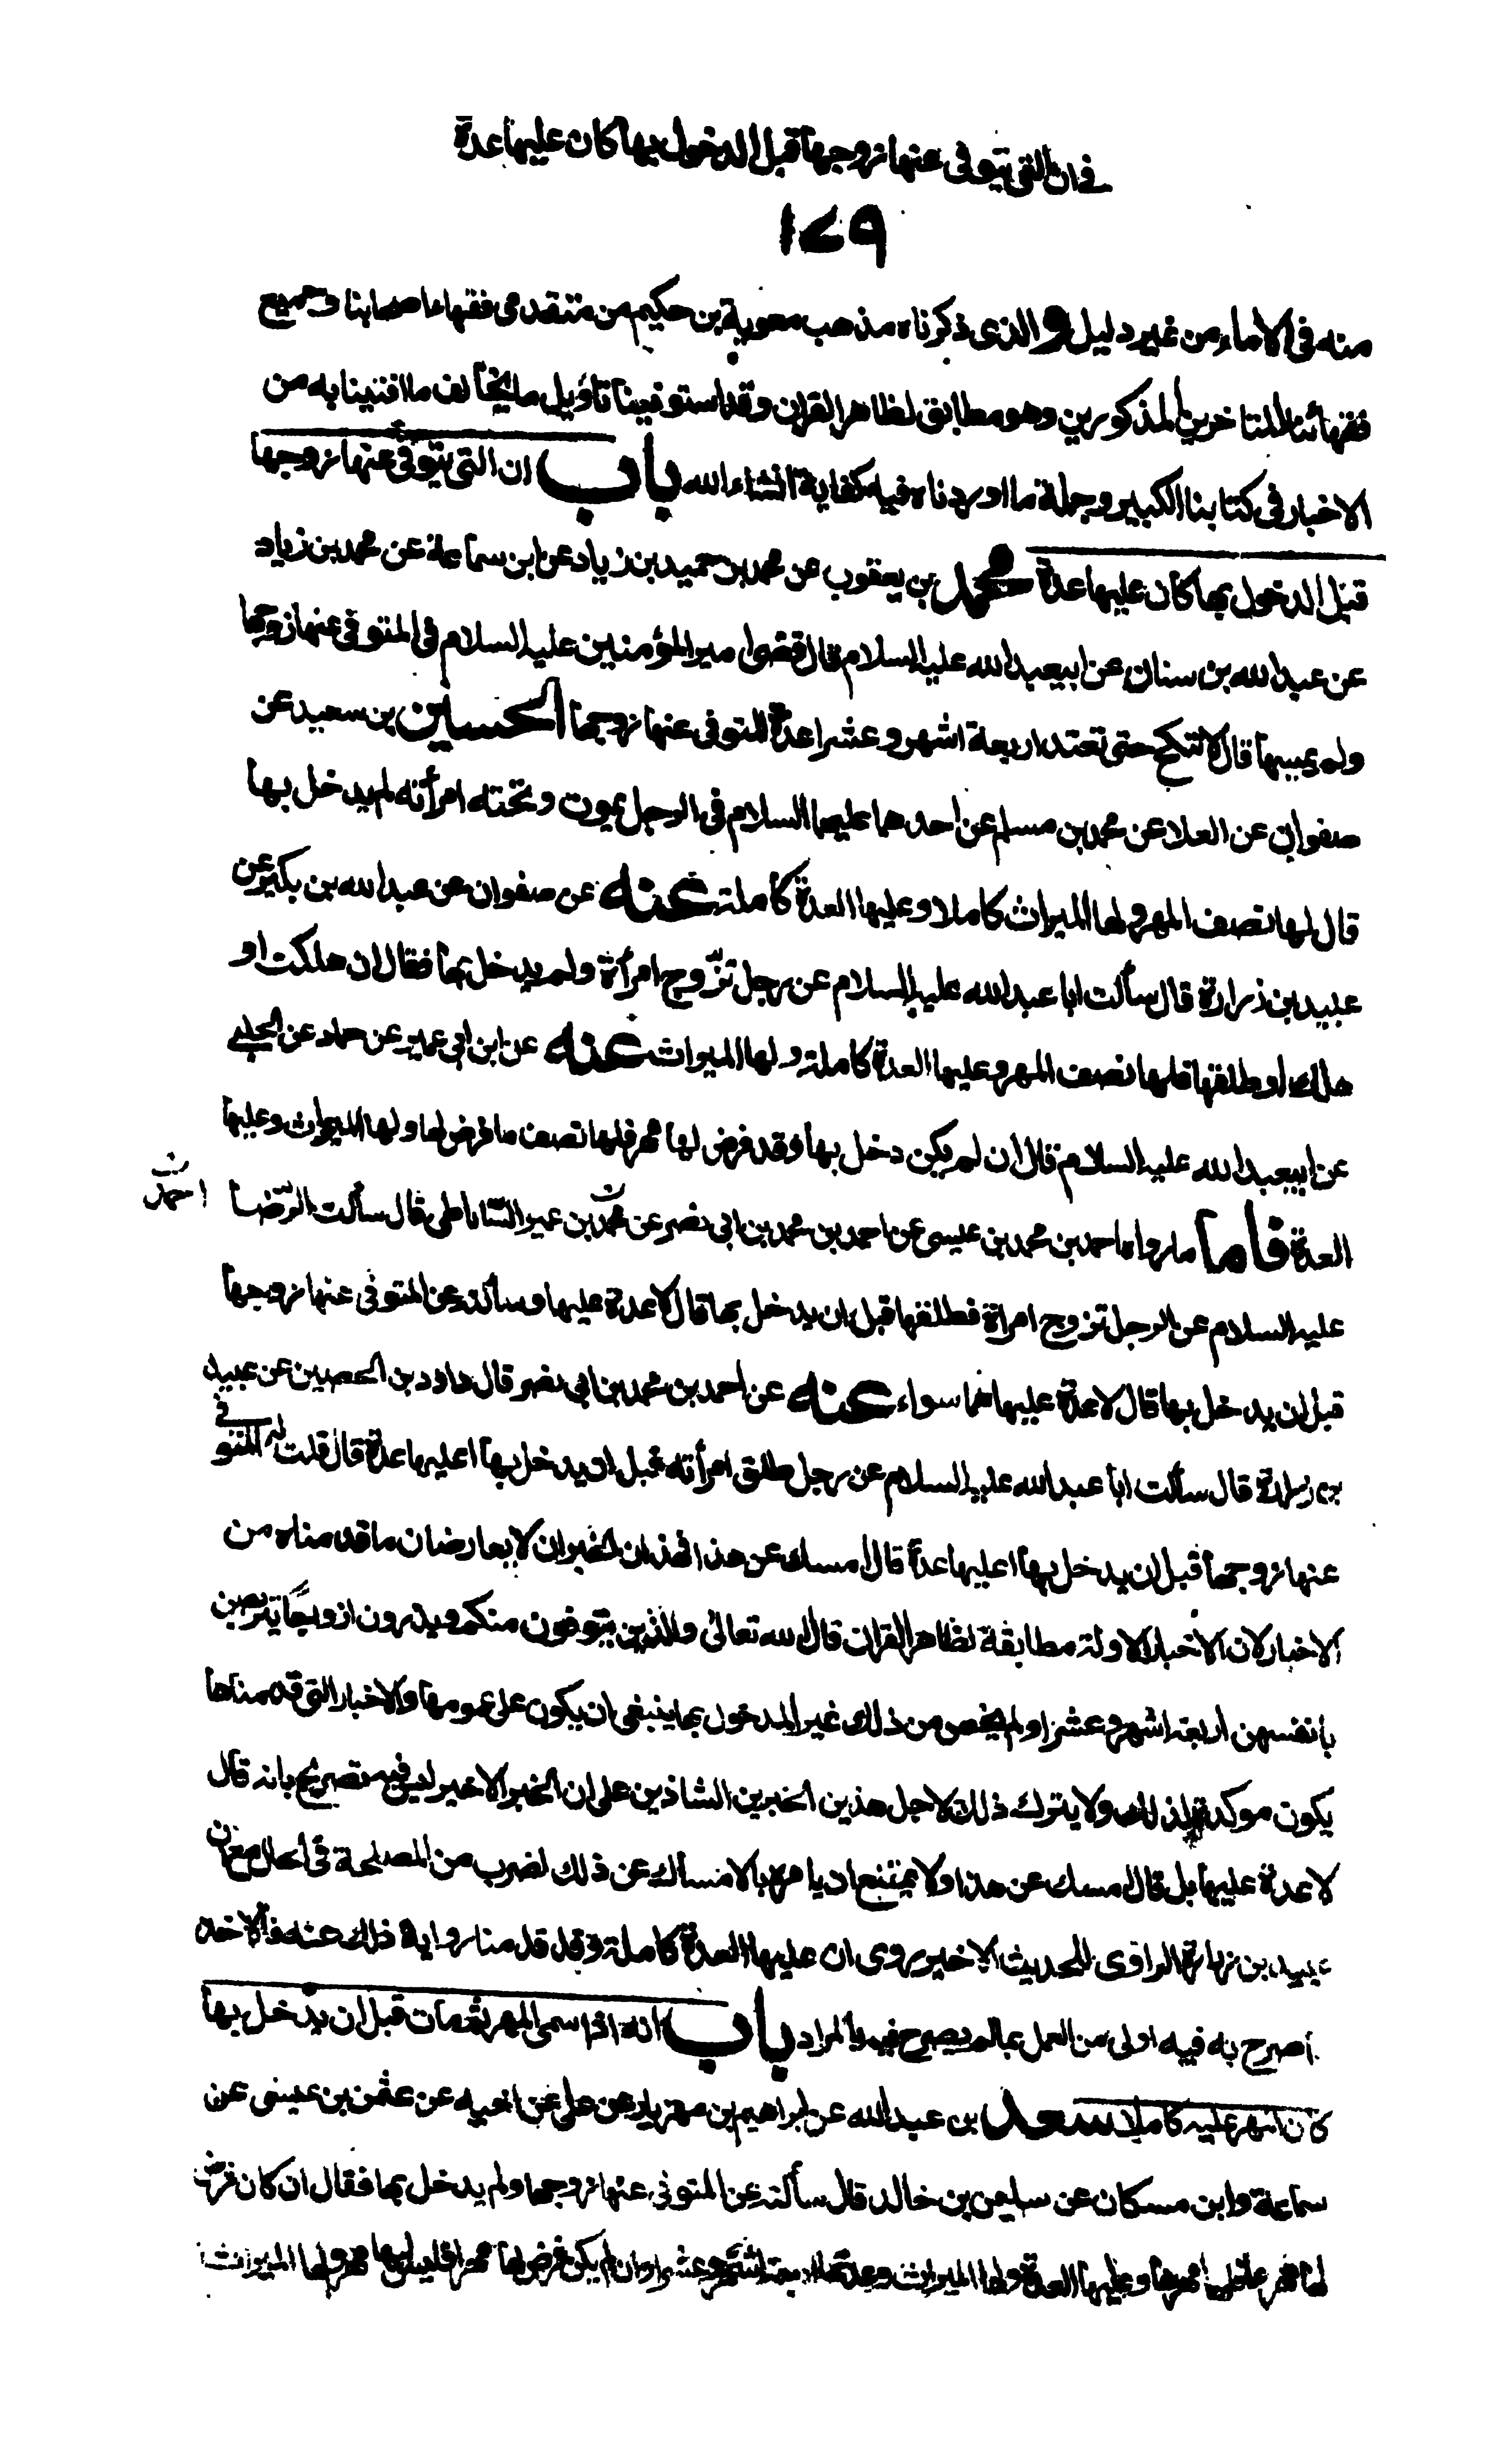 في ان التي يتوفى عنها زوجها قبل الدخول بها كان عليها عدة
١٧٩
منه في الاماء من غير دليل والذى ذكرناه مذهب معوية بن حكيم من متقدمى فقهاء اصحابنا وجميع
فقهائنا المتاخرين المذكورين وهو مطابق لظاهر القران وقد استوفينا تاؤيل ما يخالف ما افتينا به من
الاخبار فى كتابنا الكبير وجملة ما اوردناه فيه كفاية انشاء الله باب ان التى يتوفى عنها زوجها
قبل الدخول بها كان عليها عدة محمد بن يعقوب عن محمد بن حميد بن زياد عن ابن سماعة عن محمد بن زياد
عن عبد الله بن سنان عن ابيعبد الله عليه السلام قال قضى امير المؤمنين عليه السلام فى المتوفى عنها زوجها
ولم يمسها قال لا تنكح حتى تعتد اربعة اشهر وعشرا عدة المتوفى عنها زوجها الحسين بن سعيد عن
صفوان عن العلا عن محمد بن مسلم عن احدهما عليهما السلام فى الرجل يموت وتحته امرأته لم يدخل بها
قال لها نصف المهر ولها الميراث كاملا وعليها العدة كاملة عنه عن صفوان عن عبد الله بن بكير عن
عبيد بن زرارة قال سألت ابا عبد الله عليه السلام عن رجل تزّوج امرأة ولم يدخل بها فقال ان هلكت او
هلك او طلقها فلها نصف المهر وعليها العدة كاملة ولها الميراث عنه عن ابن ابى عمير عن حماد عن الحلبى
عن ابيعبد الله عليه السلام قال ان لم يكن دخل بها وقد فرض لها مهر فلها نصف ما فرض لها ولها الميراث وعليها
العدة فاما ما رواه احمد بن محمد بن عيسى عن احمد بن محمد بن ابى نصر عن محمد بن عمير السّاباطى قال سألت الرّضا
احمد ن
عليه السلام عن الرجل تزوج امراة فطلقها قبل ان يدخل بها قال لا عدة عليها وسألته عن المتوفى عنها زوجها
قبل ان يدخل بها قال لا عدة عليها هما سواء عنه عن احمد بن محمد بن ابى نصر قال داود بن الحصين عن عبيد
بن زرارة قال سألت ابا عبد الله عليه السلام عن رجل طلق امرأته قبل ان يدخل بها اعليها عدة قال قلت له المتوفى
عنها زوجها قبل ان يدخل بها اعليها عدة قال امسك عن هذا فهذان الخبران لا يعارضان ما قدمناه من
الاخبار لان الاخبار الاولة مطابقة لظاهر القران قال الله تعالى والذين يتوفون منكم ويذرون ازواجًا يتربصن
بانفسهن اربعة اشهر وعشرا ولم يخص من ذلك غير المدخول بها ينبغى ان يكون على عمومها والاخبار التى قدمناها
يكون موكدة لذلك ولا يترك ذلك لاجل هذين الخبرين الشاذين على ان الخبر الاخير ليس فيه تصريح بانه قال
لا عدة عليها بل قال امسك عن هذا ولا يمتنع ان يامره بالامساك عن ذلك لضرب من المصلحة فى الحال مع ان
عبيد بن زرارة الراوى للحديث الاخير روى ان عليها العدة كاملة وقد قدمنا رواية ذلك عنه فالاخذ
بما صرح به فيه اولى من العمل بما لم يصرح فيه بالمراد باب انه اذا سمى المهر ثم مات قبل ان يدخل بها
كان المهر عليه كاملا سعد بن عبد الله عن ابراهيم بن مهزيار عن على عن اخيه عن عثمن بن عيسى عن
سماعة وابن مسكان عن سليمن بن خالد قال سألته عن المتوفى عنها زوجها ولم يدخل بها فقال ان كان فرض
لها مهر فلها مهرها وعليها العدة ولها الميراث وعدتها اربعة اشهر وعشرا وان لم يكن فرض لها مهرا فليس لها مهر ولها الميراث